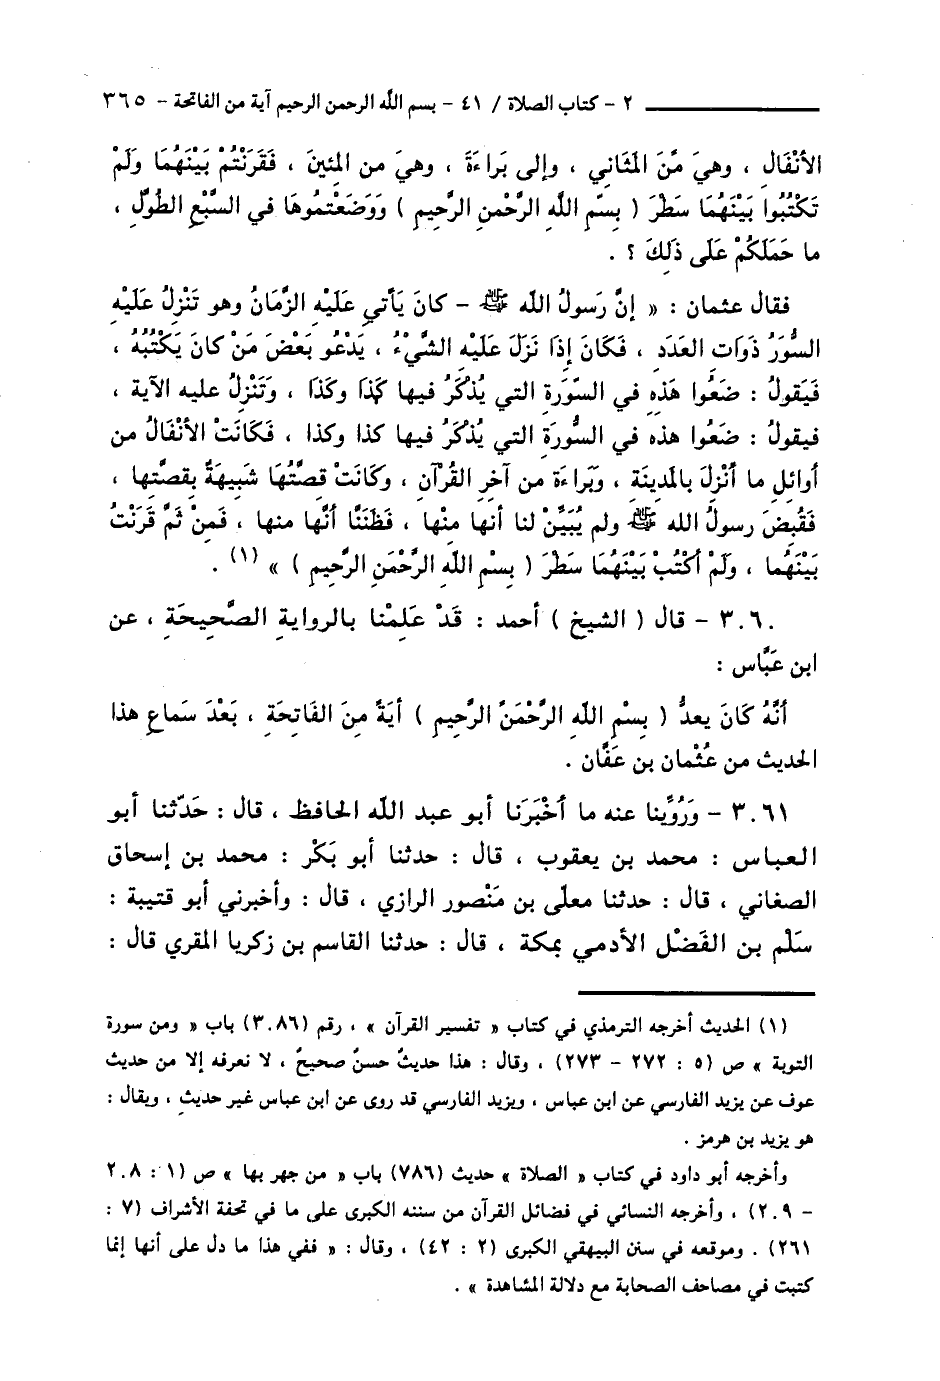 ٢ - كتاب الصلاة / ٤١ - بسم الله الرحمن الرحيم آية من الفاتحة - ٣٦٥
الأنْفَال ِ ، وهيَ مَّنَ المَثَاني ، وإلى بَرَاءَةَ ، وهيَ من المئينَ ، فَقَرَنْتُمْ بَيْنَهُمَا وَلَمْ
تَكْتُبُوا بَيْنَهُمَا سَطْرَ ( بِسْمِ اللهِ الرَّحْمنِ الرَّحِيمِ ) وَوَضَعْتمُوهَا في السَّبْعِ الطُّوَّلِ ،
ما حَمَلَكُمْ عَلَى ذَلِكَ ؟ .
فقال عثمان : « إنَّ رَسولُ الله ﷺ - كانَ يَأتي عَلَيْهِ الزَّمَانُ وهو تَنْزِلُ عَلَيْهِ
السُّوَرُ ذَوَات العَدَدِ ، فَكَانَ إذَا نَزَلَ عَلَيْهِ الشَّيْءُ ، يَدْعُو بَعْضَ مَنْ كانَ يَكْتُبُهُ ،
فَيَقولُ : ضَعُوا هَذِهِ في السّوَرَةِ التي يُذكَرُ فيها كَذا وكَذا ، وَتَنْزِلُ عليه الآية ،
فيقولُ : ضَعُوا هذه في السُّورَةِ التي يُذكَرُ فيها كذا وكذا ، فَكَانَتْ الأنْفَالُ من
أوائلِ ما أنْزِلَ بالمدينَةِ ، وبَراءَة من آخرِ القُرآنِ ، وكَانَتْ قصَّتُهَا شَبيهَةً بقصَّتِها ،
فَقُبِضَ رسولُ الله ﷺ ولم يُبَيِّنْ لنا أنها منْها ، فَظَنَنَّا أنَّها منها ، فَمِنْ ثَمَّ قَرَنْتُ
بَيْنَهُما ، وَلَمْ أكْتُبْ بَيْنَهُمَا سَطْرَ ( بِسْمِ اللهِ الرَّحْمَنِ الرَّحيمِ ) » (١) .
٣.٦. - قال ( الشيخ ) أحمد : قَدْ عَلِمْنا بالروايةِ الصَّحيحَةِ ، عن
ابن عَبَّاس :
أنَّهُ كَانَ يعدُّ ( بِسْمِ اللهِ الرَّحْمَنِ الرَّحِيمِ ) أيَةً مِنَ الفَاتِحَةِ ، بَعْدَ سَماعِ هذا
الحديث من عُثْمان بن عَفَّان .
٣.٦١ - وَرُوِّينا عنه ما أخْبَرَنا أبو عبد الله الحافظ ، قال : حَدّثنا أبو
العباس : محمد بن يعقوب ، قال : حدثنا أبو بَكْر : محمد بن إسحاق
الصغاني ، قال : حدثنا معلى بن مَنْصور الرازي ، قال : وأخبرني أبو قتيبة :
سَلْم بن الفَضْل الأدمي بمكة ، قال : حدثنا القاسم بن زكريا المقري قال :
(١) الحديث أخرجه الترمذي في كتاب « تفسير القرآن » ، رقم (٣.٨٦) باب « ومن سورة
التوبة » ص (٥ : ٢٧٢ - ٢٧٣) ، وقال : هذا حديثٌ حسنٌ صحيحٌ ، لا نعرفه إلا من حديث
عوف عن يزيد الفارسي عن ابن عباس ، ويزيد الفارسي قد روى عن ابن عباس غير حديثٍ ، ويقال :
هو يزيد بن هرمز .
وأخرجه أبو داود في كتاب « الصلاة » حديث (٧٨٦) باب « من جهر بها » ص (١ : ٢.٨
- ٢.٩) ، وأخرجه النسائي في فضائل القرآن من سننه الكبرى على ما في تحفة الأشراف (٧ :
٢٦١) . وموقعه في سنن البيهقي الكبرى (٢ : ٤٢) ، وقال : « ففي هذا ما دل على أنها إنما
كتبت في مصاحف الصحابة مع دلالة المشاهدة » .